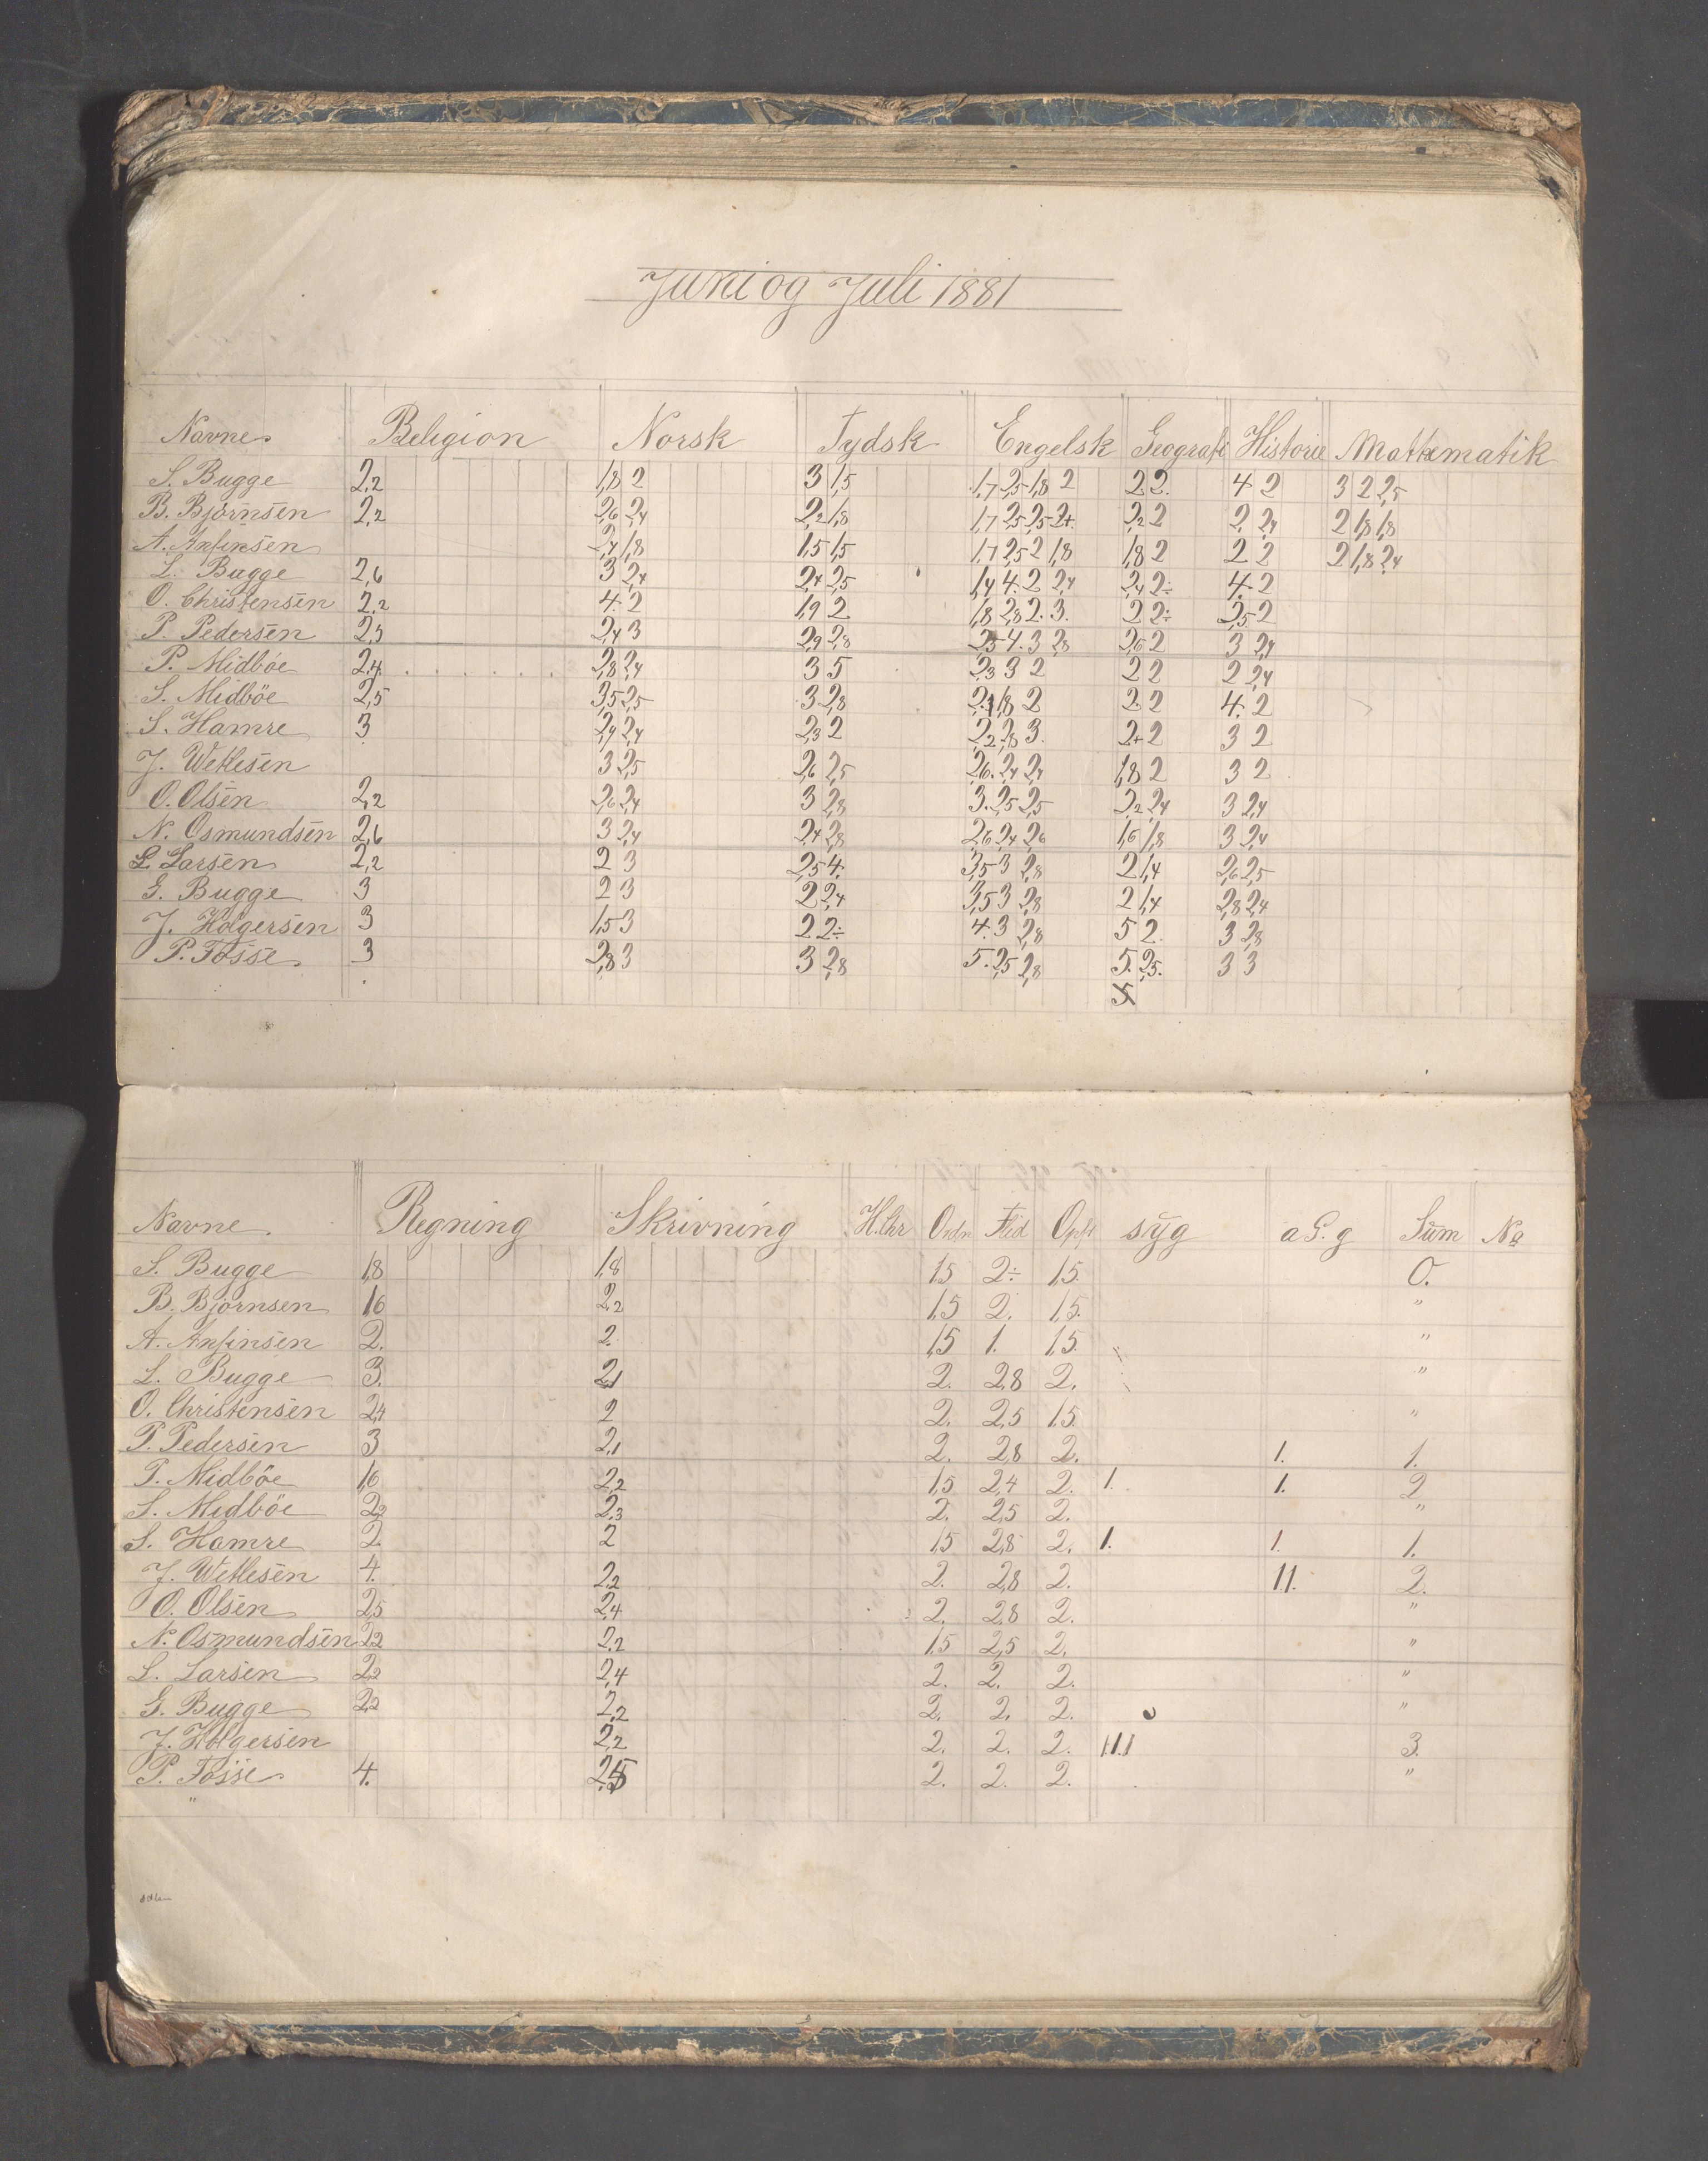 Juni og Juli 1881
Navne Religion Norsk Tydsk Engelsk Geografi Historie Mathematik
S. Bugge 2,2 1,8 2 3 1,5 1,7 2,5 1,8 2 2 2. 4 2 3 2 2,5
B. Björnsen 2,2 2,6 2,4 2,2 1,8 1,7 2,5 2,5 2+ 2,2 2 2 2,4 2 1,8 1,8
A. Anfinsen 2,4 1,8 1,5 1,5 1,7 2,5 2 1,8 1,8 2 2 2 2 1,8 2,4
L. Bugge 2,6 3 2,4 2,4 2,5 1,4 4. 2 2,4 2,4 2÷ 4. 2
O. Christensen 2,2 4. 2 1,9 2 1,8 2,8 2. 3. 2 2÷ 2,5 2
P. Pedersen 2,5 2,4 3 2,9 2,8 2,5 4. 3 2,8 2,6 2 3 2,4
P. Midböe 2,4. 2,8 2,4 3 5 2,3 3 2 2 2 2 2,4
S. Midböe 2,5 3,5 2,5 3 2,8 2,1 1,8 2 2 2 4. 2
S. Hamre 3 2,9 2,4 2,3 2 2,2 2,8 3. 2+ 2 3 2
J. Wetlesen 3 2,5 2,6 2,5 2,6. 2,4 2,4 1,8 2 3 2
O. Olsen 2,2 2,6 2,4 3 2,8 3. 2,5 2,5 2,2 2,4 3 2,4
N. Osmundsen 2,6 3 2,4 2,4 2,8 2,6 2,4 2,6 1,6 1,8 3 2,4
L. Larsen 2,2 2 3 2,5 4. 3,5 3 2,8 2 1,4 2,6 2,5
G. Bugge 3 2 3 2 2,4 3,5 3 2,8 2 1,4 2,8 2,4
J. Holgersen 3 1,5 3 2 2÷ 4. 3 2,8 5 2. 3 2,8
P. Fosse 3 2,8 3 3 2,8 5. 2,5 2,8 5. 2,5. 3 3
5
Navne Regning Skrivning Ordn Flid Opf syg a G. g Sum No
S. Bugge 1,8 1,8 1,5 2÷ 1,5. 0.
B. Björnsen 1,6 2,2 1,5 2. 1,5. "
A. Anfinsen 2. 2. 1,5 1. 1,5. "
L. Bugge 3. 2,1 2. 2,8 2. "
O. Christensen 2,4 2 2. 2,5 1,5 "
P. Pedersen 3 2,1 2. 2,8 2. 1. 1.
P. Midböe 1,6 2,2 1,5 2,4 2. 1. 1. 2
S. Midböe 2,2 2,3 2. 2,5 2. "
S. Hamre 2 2 1,5 2,8 2. 1. 1. 1.
J. Wetlesen 4. 2,2 2. 2,8 2. 1.1. 2.
O. Olsen 2,5 2,4 2. 2,8 2. "
N. Osmundsen 2,2 2,2 1,5 2,5 2. "
L. Larsen 2,2 2,4 2. 2. 2. "
G. Bugge 2,2 2,2 2. 2. 2. "
J. Holgersen 2,2 2. 2. 2. 1.1.1 3.
P. Fosse 4. 2. 2. 2. "
"